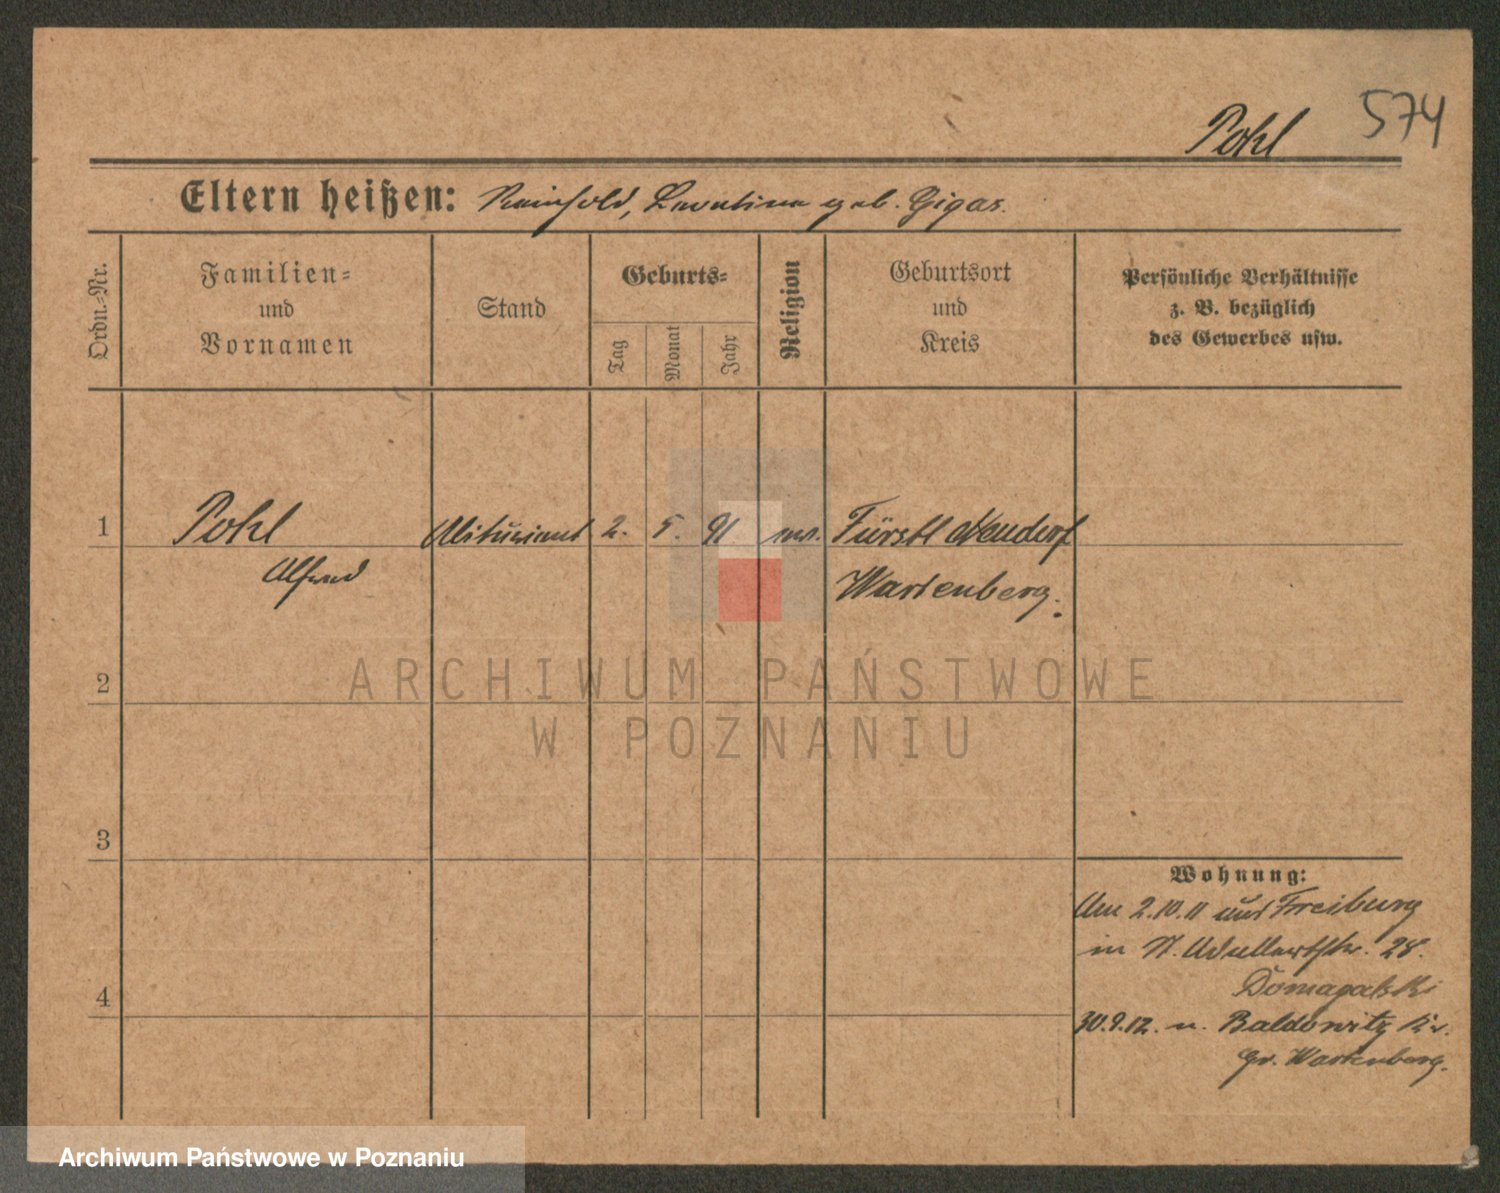 574
Pohl
Eltern heißen: Reinhold, geb. Gigas.
Ordn.-Nr.
Familien-
und
Vornamen
Stand
Geburts-
Tag
Monat
Jahr
Religion
Geburtsort
und
Kreis
Persönliche Verhältnisse
z. B. bezüglich
des Gewerbes usw.
1 Pohl Abiturient 2. 5. 91 Fürstl Neudorf
Alfred Wartenberg.
2
3
4
Wohnung:
Am 2.10.11 aus Freiburg
in 28.
Domagalski
30.9.12. n. Baldowitz Kr.
Gr. Wartenberg.
ARCHIWUM PAŃSTWOWE
W POZNANIU
Archiwum Państwowe w Poznaniu